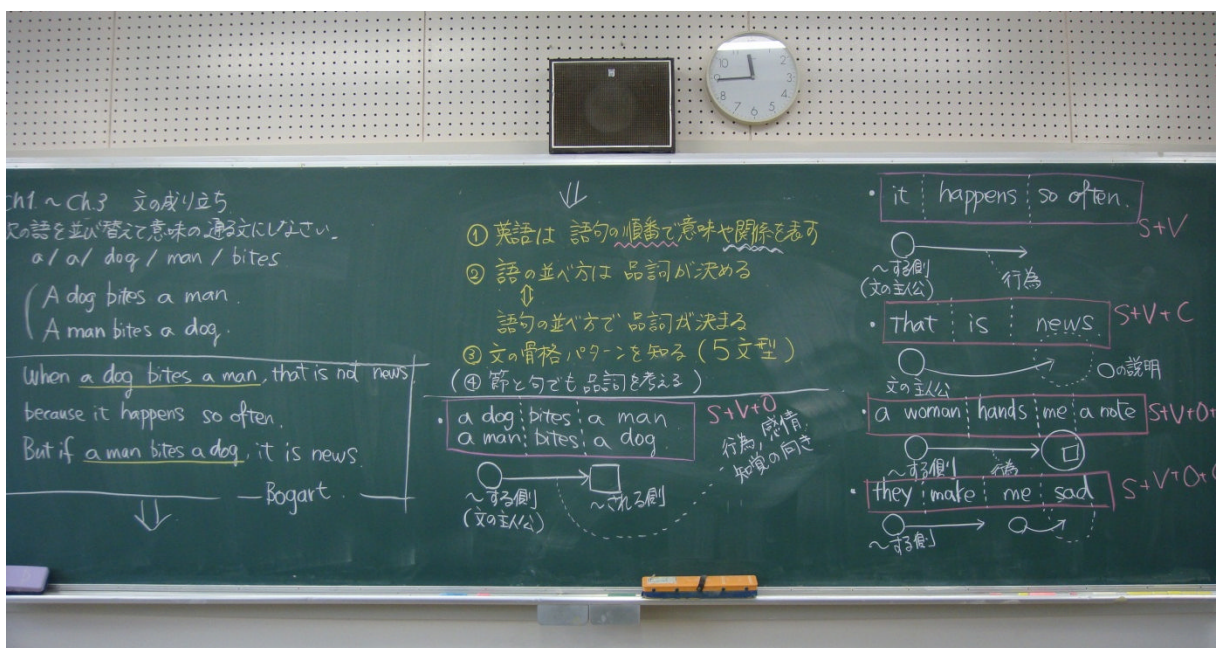 Ch1.~Ch.3 文の成り立ち
次の語を並び替えて意味の通る文にしなさい.
a/a/dog/man/bites
A dog bites a man.
A man bites a dog.
When a dog bites a man, that is not news
because it happens so often.
But if a man bites a dog, it is news.
Bogart
① 英語は 語句の順番で意味や関係を表す
② 語の並べ方は 品詞が決める
語句の並べ方で 品詞が決まる
③ 文の骨格パターンを知る (5文型)
(④ 節と句でも品詞を考える)
・a dog bites a man
a man bites a dog
S+V+O
行為, 感情,
知覚の向き
~する側
(文の主人公)
~される側
・it happens so often.
S+V
~する側
(文の主人公)
行為
・That is news.
S+V+C
文の主人公
○の説明
a woman hands me a note
S+V+O+
~する側
行為
・they make me sad
S+V+O+
~する側
12
1
2
3
4
5
6
7
8
9
10
11